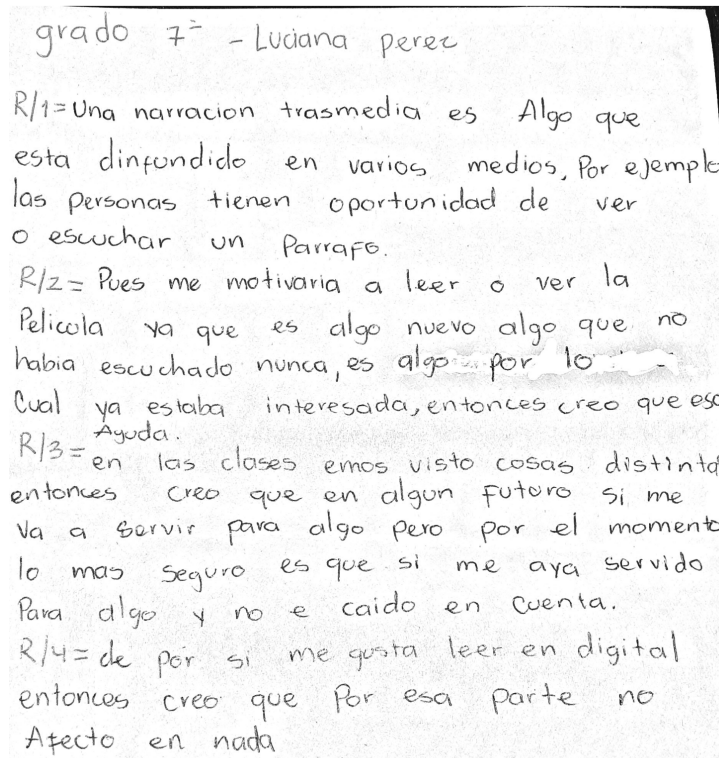 grado 7º - Luciana perez
R/1= Una narracion trasmedia es Algo que
esta dinfundido en varios medios, Por ejemplo
las personas tienen oportunidad de ver
o escuchar un Parrafo.
R/2= Pues me motivaria a leer o ver la
Pelicola ya que es algo nuevo algo que no
habia escuchado nunca, es algo por lo
Cual ya estaba interesada, entonces creo que eso
Ayuda.
R/3= en las clases emos visto cosas distinta
entonces creo que en algun futuro si me
va a servir para algo pero por el momento
lo mas seguro es que si me aya servido
Para algo y no e caido en cuenta.
R/4= de por si me gusta leer en digital
entonces creo que Por esa parte no
Afecto en nada